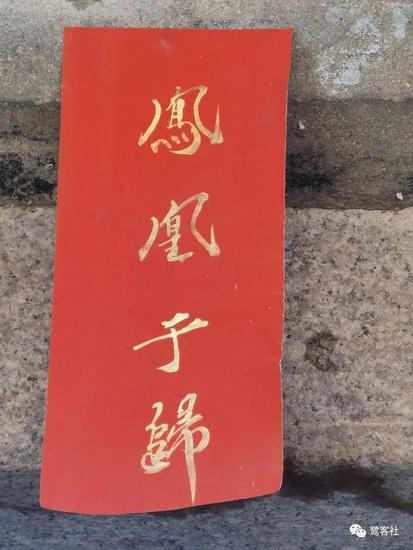 鳳凰于歸
鹭客社